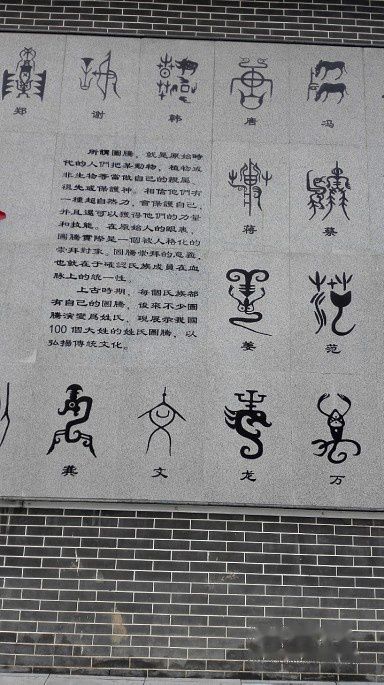 郑 谢 韩 唐 冯
所謂圖騰，就是原始時
代的人們把某動物，植物或
非生物等當做自己的親屬、
祖先或保護神。相信他們有
一種超自然力，會保護自己，
并且還可以獲得他們的力量
和技能。在原始人的眼里，
圖騰實際是一個被人格化的
崇拜對象。圖騰崇拜的意義，
也就在于確認氏族成員在血
脉上的統一性。
上古時期，每個氏族都
有自己的圖騰，後來不少圖
騰演變爲姓氏，現展示我國
100個大姓的姓氏圖騰，以
弘揚傳統文化。
蒋 蔡
姜 范
龚 文 龙 万